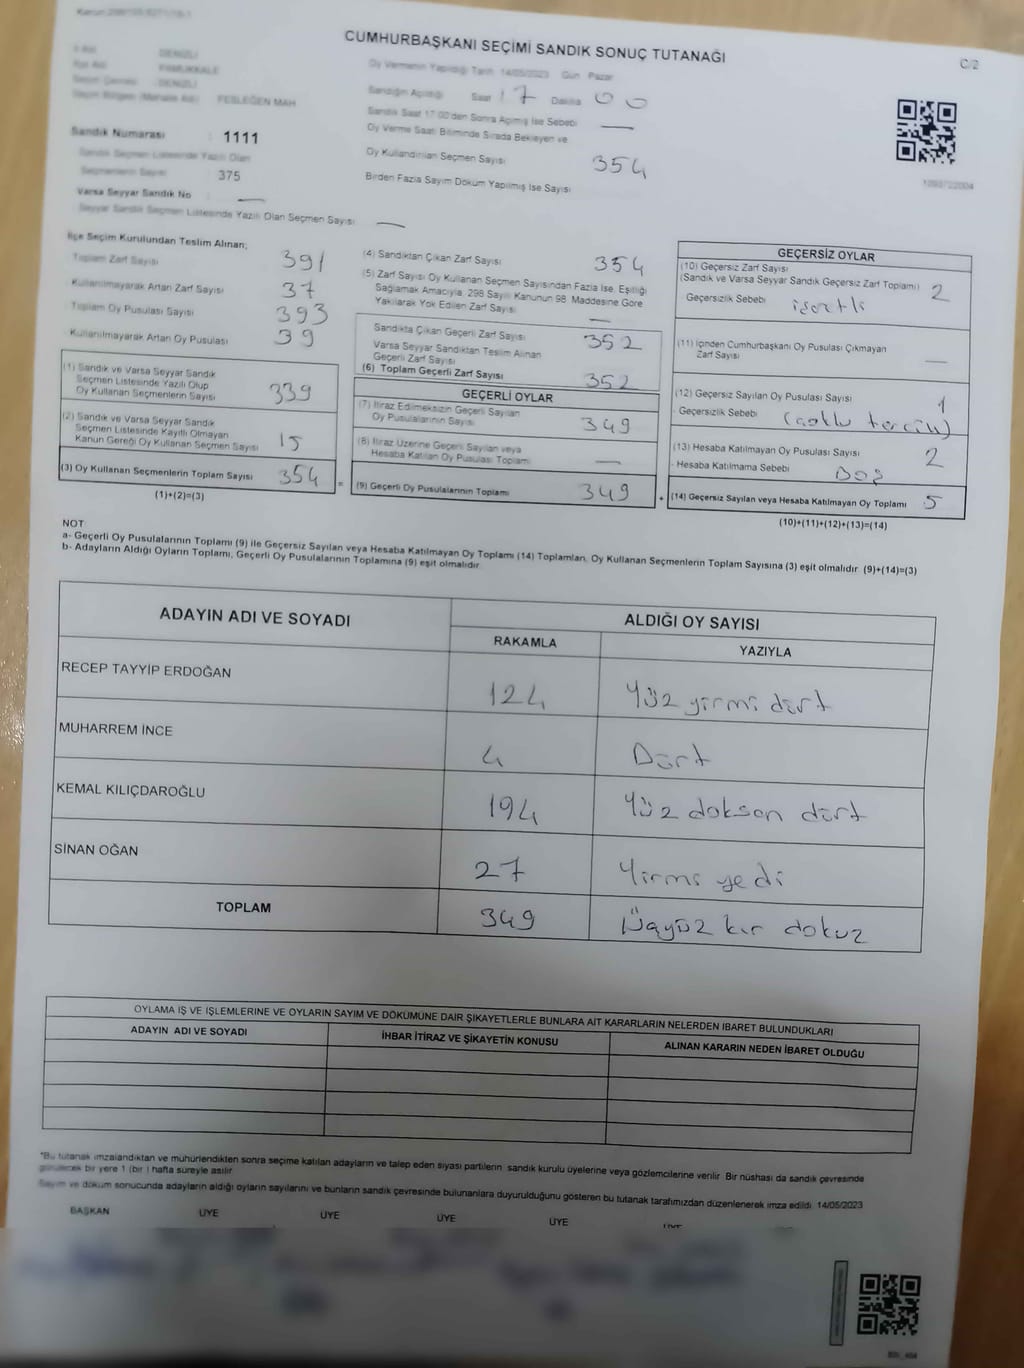 CUMHURBAŞKANI SEÇİMİ SANDIK SONUÇ TUTANAĞI
C/2
İl Adı : DENİZLİ
İlçe Adı : PAMUKKALE
Seçim Çevresi : DENİZLİ
Seçim Bölgesi (Mahalle Adı) : FESLEĞEN MAH
Sandık Numarası : 1111
Sandık Seçmen Listesinde Yazılı Olan
Seçmenlerin Sayısı : 375
Varsa Seyyar Sandık No : —
Seyyar Sandık Seçmen Listesinde Yazılı Olan Seçmen Sayısı : —
Oy Vermenin Yapıldığı Tarih 14/05/2023 Gün Pazar
Sandığın Açıldığı Saat 17 Dakika 00
Sandık Saat 17.00'den Sonra Açılmış İse Sebebi —
Oy Verme Saati Bitiminde Sırada Bekleyen ve
Oy Kullandırılan Seçmen Sayısı 354
Birden Fazla Sayım Döküm Yapılmış İse Sayısı
İlçe Seçim Kurulundan Teslim Alınan;
Toplam Zarf Sayısı 391
Kullanılmayarak Artan Zarf Sayısı 37
Toplam Oy Pusulası Sayısı 393
Kullanılmayarak Artan Oy Pusulası 39
(1) Sandık ve Varsa Seyyar Sandık
Seçmen Listesinde Yazılı Olup
Oy Kullanan Seçmenlerin Sayısı 339
(2) Sandık ve Varsa Seyyar Sandık
Seçmen Listesinde Kayıtlı Olmayan
Kanun Gereği Oy Kullanan Seçmen Sayısı 15
(3) Oy Kullanan Seçmenlerin Toplam Sayısı 354
(1)+(2)=(3)
=
(4) Sandıktan Çıkan Zarf Sayısı 354
(5) Zarf Sayısı Oy Kullanan Seçmen Sayısından Fazla İse, Eşitliği
Sağlamak Amacıyla, 298 Sayılı Kanunun 98. Maddesine Göre
Yakılarak Yok Edilen Zarf Sayısı —
Sandıkta Çıkan Geçerli Zarf Sayısı 352
Varsa Seyyar Sandıktan Teslim Alınan
Geçerli Zarf Sayısı
(6) Toplam Geçerli Zarf Sayısı 352
GEÇERLİ OYLAR
(7) İtiraz Edilmeksizin Geçerli Sayılan
Oy Pusulalarının Sayısı 349
(8) İtiraz Üzerine Geçerli Sayılan veya
Hesaba Katılan Oy Pusulası Toplamı —
(9) Geçerli Oy Pusulalarının Toplamı 349
+
GEÇERSİZ OYLAR
(10) Geçersiz Zarf Sayısı
(Sandık ve Varsa Seyyar Sandık Geçersiz Zarf Toplamı) 2
Geçersizlik Sebebi işartlı
(11) İçinden Cumhurbaşkanı Oy Pusulası Çıkmayan
Zarf Sayısı —
(12) Geçersiz Sayılan Oy Pusulası Sayısı 1
- Geçersizlik Sebebi (çoklu tercih)
(13) Hesaba Katılmayan Oy Pusulası Sayısı 2
- Hesaba Katılmama Sebebi Boş
(14) Geçersiz Sayılan veya Hesaba Katılmayan Oy Toplamı 5
(10)+(11)+(12)+(13)=(14)
NOT
a- Geçerli Oy Pusulalarının Toplamı (9) ile Geçersiz Sayılan veya Hesaba Katılmayan Oy Toplamı (14) Toplamları, Oy Kullanan Seçmenlerin Toplam Sayısına (3) eşit olmalıdır. (9)+(14)=(3)
b- Adayların Aldığı Oyların Toplamı, Geçerli Oy Pusulalarının Toplamına (9) eşit olmalıdır.
ADAYIN ADI VE SOYADI
ALDIĞI OY SAYISI
RAKAMLA YAZIYLA
RECEP TAYYİP ERDOĞAN 124 Yüz yirmi dört
MUHARREM İNCE 4 Dört
KEMAL KILIÇDAROĞLU 194 Yüz doksan dört
SİNAN OĞAN 27 Yirmi yedi
TOPLAM 349 Üçyüz kır dokuz
OYLAMA İŞ VE İŞLEMLERİNE VE OYLARIN SAYIM VE DÖKÜMÜNE DAİR ŞİKAYETLERLE BUNLARA AİT KARARLARIN NELERDEN İBARET BULUNDUKLARI
ADAYIN ADI VE SOYADI İHBAR İTİRAZ VE ŞİKAYETİN KONUSU ALINAN KARARIN NEDEN İBARET OLDUĞU
*Bu tutanak imzalandıktan ve mühürlendikten sonra seçime katılan adayların ve talep eden siyasi partilerin sandık kurulu üyelerine veya gözlemcilerine verilir. Bir nüshası da sandık çevresinde
görülecek bir yere 1 (bir ) hafta süreyle asılır.
Sayım ve döküm sonucunda adayların aldığı oyların sayılarını ve bunların sandık çevresinde bulunanlara duyurulduğunu gösteren bu tutanak tarafımızdan düzenlenerek imza edildi. 14/05/2023
BAŞKAN ÜYE ÜYE ÜYE ÜYE ÜYE